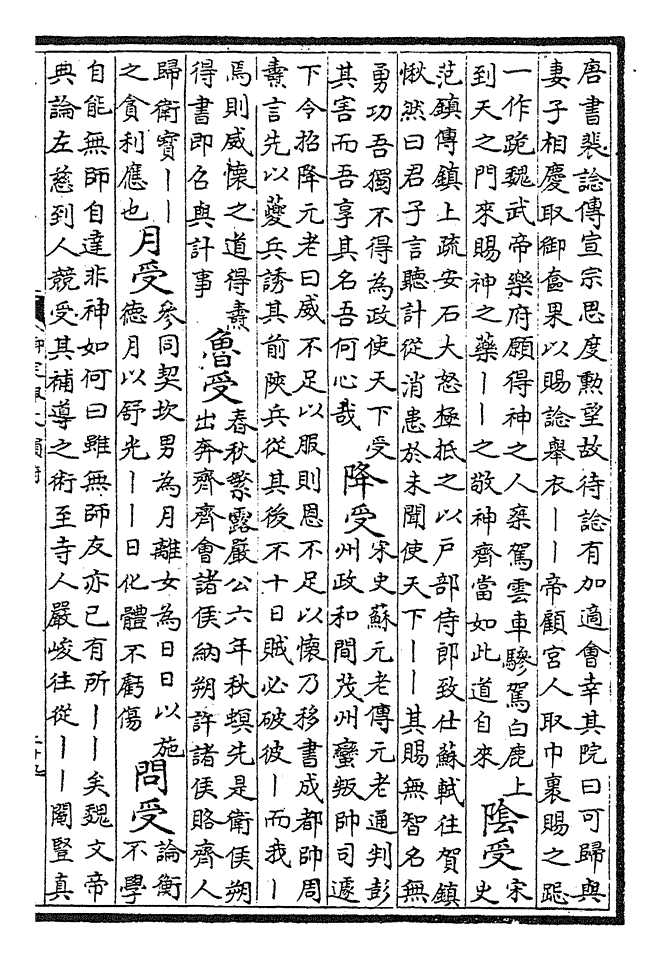 唐書裴諗傳宣宗思度勲望故待諗有加適會幸其院曰可歸與
妻子相慶取御奩果以賜諗舉衣丨丨帝顧宮人取巾裹賜之跽
一作跪魏武帝樂府願得神之人乘駕雲車驂駕白鹿上
到天之門來賜神之藥丨丨之敬神齊當如此道自來
隂受
宋
史
范鎮傳鎮上疏安石大怒極抵之以戶部侍郎致仕蘇軾往賀鎮
愀然曰君子言聽計從消患於未聞使天下丨丨其賜無智名無
勇功吾獨不得為政使天下受
其害而吾享其名吾何心哉
降受
宋史蘇元老傳元老通判彭
州政和間茂州蠻叛帥司遽
下令招降元老曰威不足以服則恩不足以懷乃移書成都帥周
燾言先以夔兵誘其前陝兵從其後不十日賊必破彼丨而我丨
焉則威懷之道得燾
得書即召與計事
魯受
春秋繁露嚴公六年秋螟先是衛侯朔
出奔齊齊會諸侯納朔許諸侯賂齊人
歸衛寶丨丨
之貪利應也
月受
參同契坎男為月離女為日日以施
德月以舒光丨丨日化體不虧傷
問受
論衡
不學
自能無師自達非神如何曰雖無師友亦已有所丨丨矣魏文帝
典論左慈到人競受其補導之術至寺人嚴峻往從丨丨閹豎真